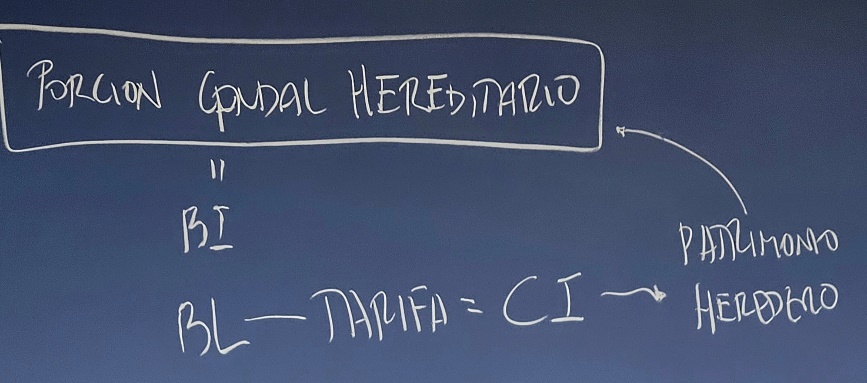 PORCION CAUDAL HEREDITARIO
"
BI
BL — TARIFA = CI → PATRIMONIO
HEREDERO